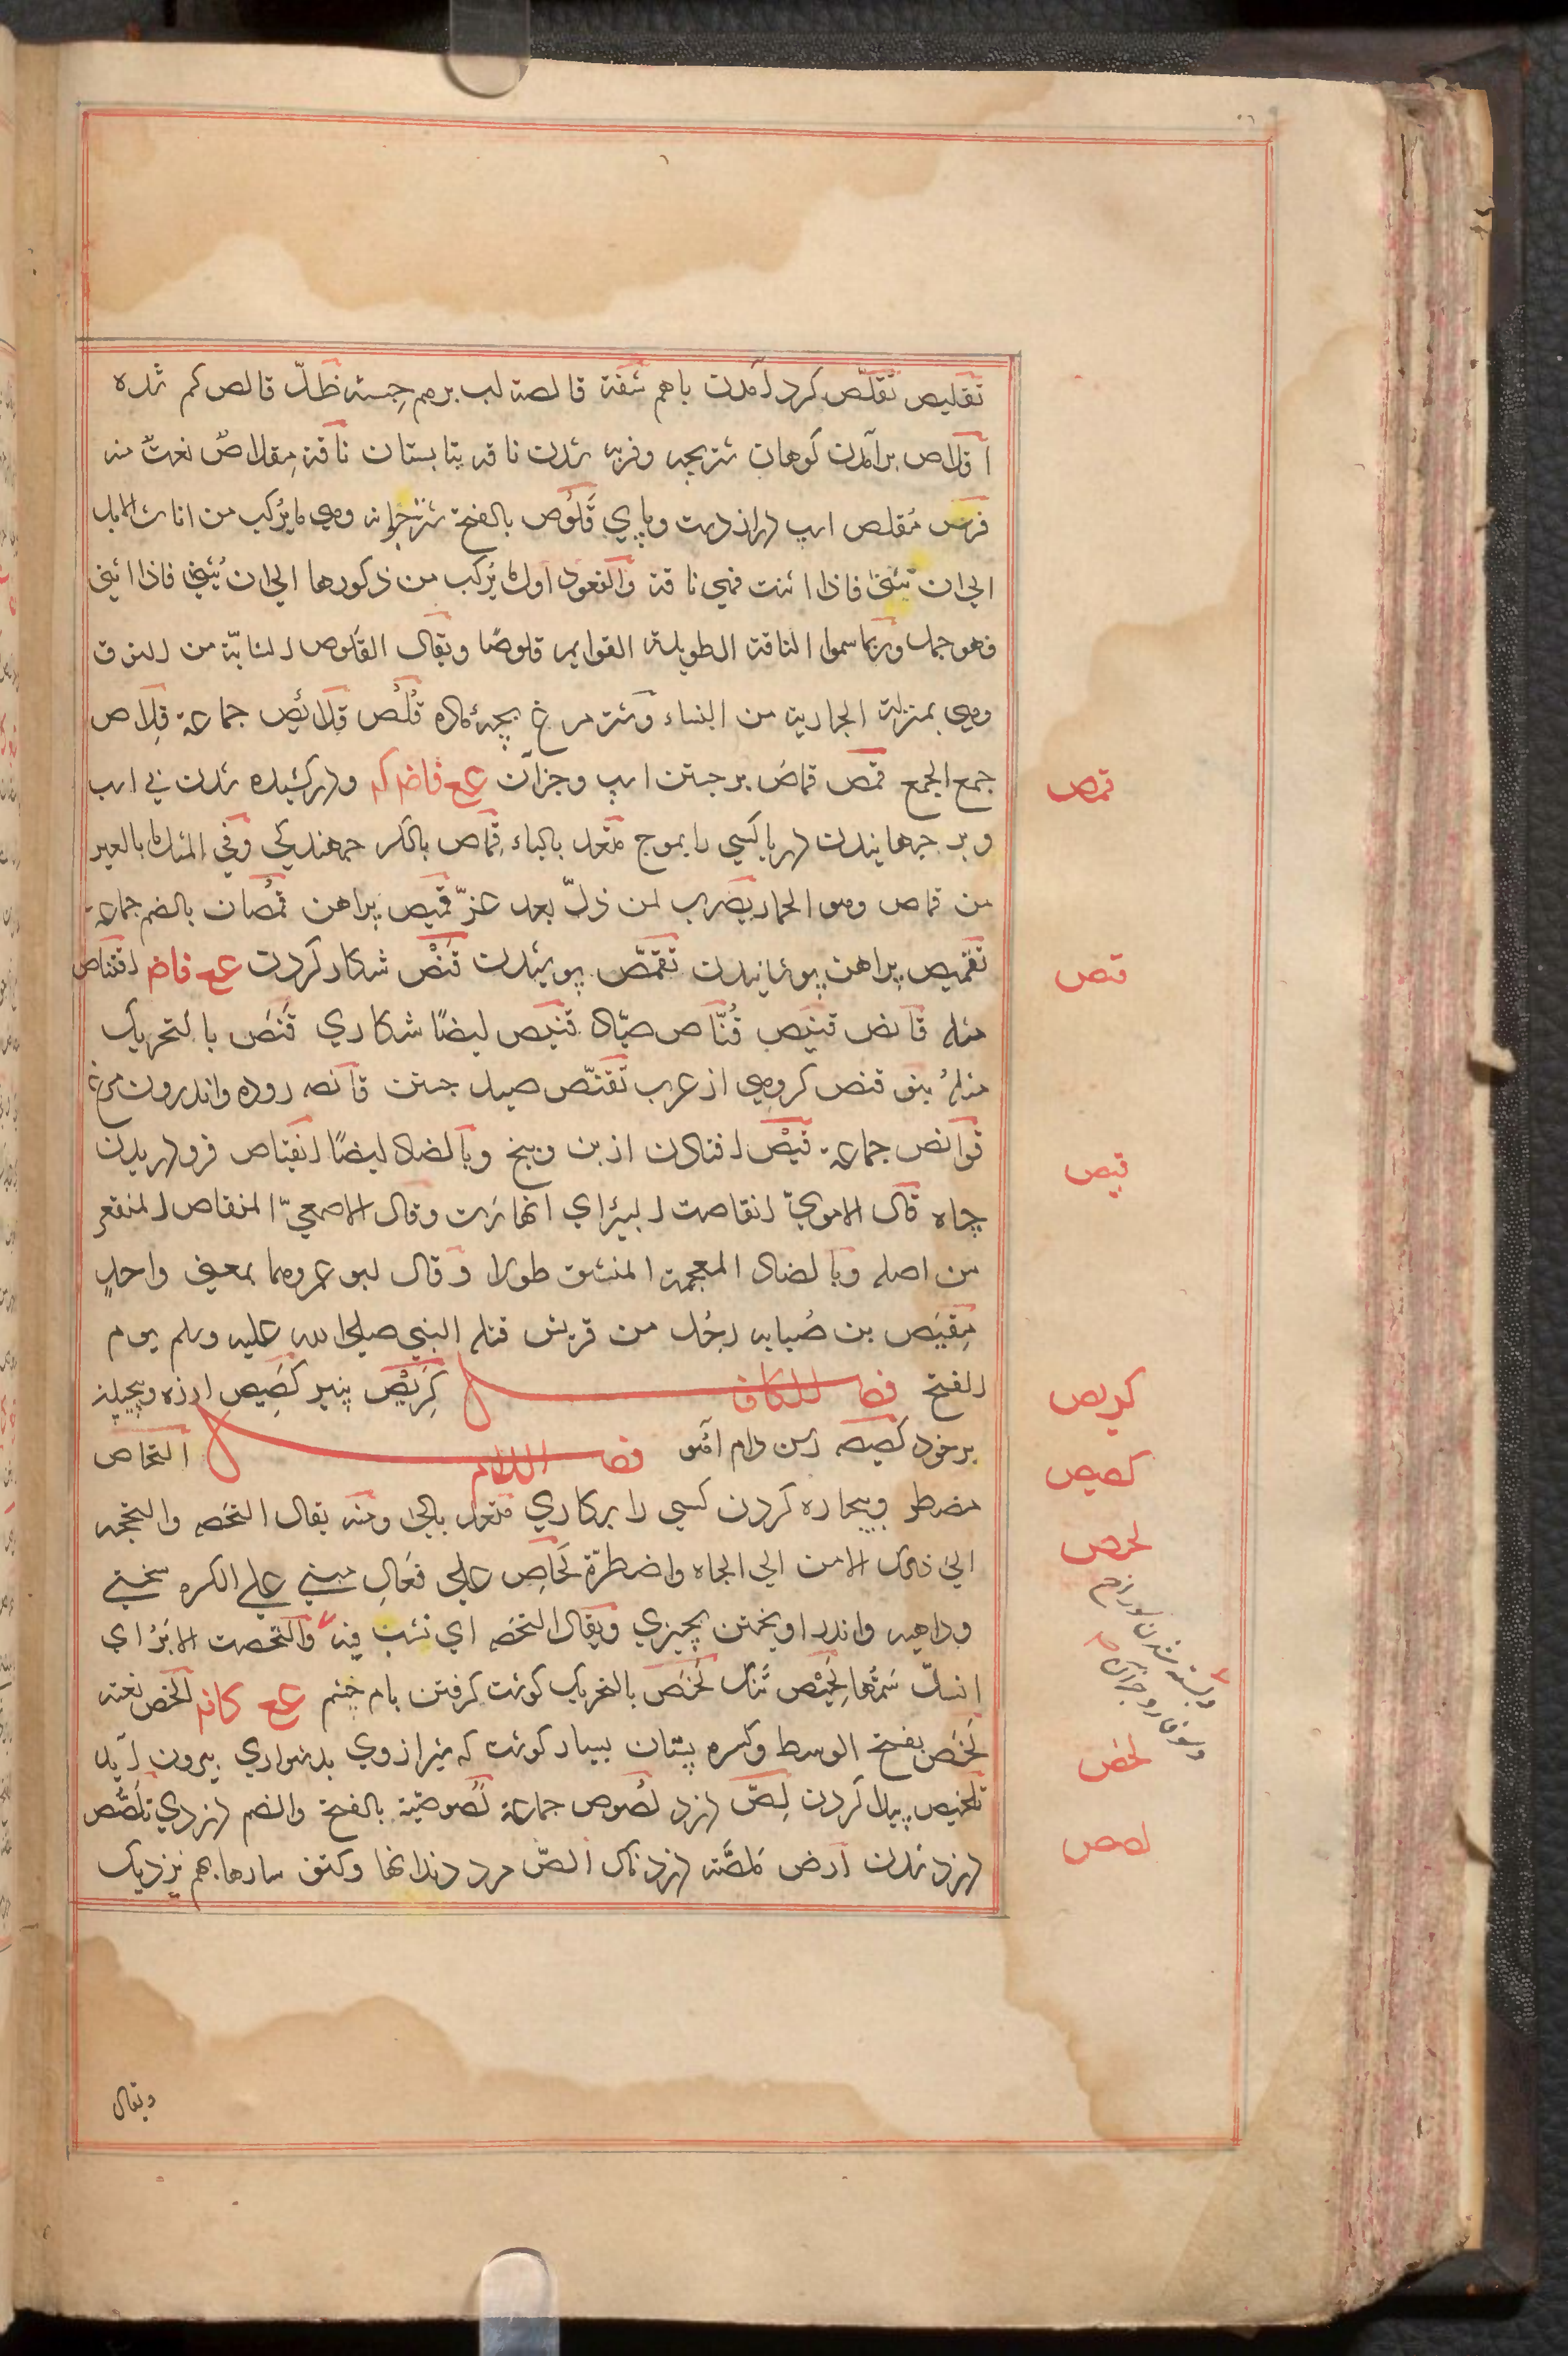 تقليص تقلّص كرد آمدن باهم شفة قالصة لب برهم جسته ظلّ قالص كم شده
اقلاص برآمدن كوهان شتر بچه و فربه شدن ناقه بتابستان ناقة مقلاص نعتٌ منه
فرس مُقلص اسپ دراز دست و پاي قَلُوص بالفتح شتر جوانه وهي ما يُركب من اناث الابل
الي ان تثني فاذا اثنت فهي ناقة والقعود اول ما يُركب من ذكورها الي ان يُثني فاذا اثني
فهو جمل و ربما سموا الناقة الطويلة القوايم قلوصًا ويقال القلوص الشابّة من النوق
وهي بمنزلة الجارية من النساء و شتر مرغ بچهٔ ماده قُلُص قلائص جماعة قِلاص
جمع الجمع قمص قماص برجستن اسپ و جز آن ع ع فاضم كم و دركشيده شدن پي اسپ
و بر جهانيدن دريا كسي را بموج متعد بالباء قماص بالكسر جهندكي وفي المثل ما بالعير
من قماص وهو الحمار يضرب لمن ذلّ بعد عزّ قميص پراهن قمصان بالضم جماعة
تقميص پراهن پوشانيدن تقمّص پوشيدن قنْص شكار كردن ع ع فاضم اقتناص
مثله قانص قنيص قُنّاص صيّاد قنيص ايضًا شكاري قَنَص بالتحريك
مثلهُ بنو قنص كروهي از عرب تقنّص صيد جستن قانصه روده و اندرون مرغ
قوانص جماعة قيْص افتادن از بن و بيخ وبالضاد ايضًا انقياص فرو دريدن
چاه قال الاموي انقاصت البئر اي انهارت وقال الاصمعيّ المنقاص المنقعر
من اصله وبالضاد المعجمة المنشق طولا وقال ابو عمرو هما بمعني واحدٍ
مِقيَص بن صُبابه رجُل من قريش قتله النبي صلي الله عليه وسلم يوم
الفتح فصل الكاف كَرِيْص پنير كَصِيص لرزه و پيچيدن
بر خود كصيصه رسن دام آهو فصل اللام التحاص
مضطر و بيچاره كردن كسي را بركاري متعد بالي و منه يقال التحصه والتحجه
الي ذلك الامر اي الجاه واضطرّه لَحاصِ علي فَعالِ مبني علي الكسره سختي
و داهيه و اندر آويختن بچيزي ويقال التحصه اي نشب فيه والتحصت الابرُ اي
انسدّ سَمُّها لَحِيْص تنك لَخَص بالتحريك كوشت كرفتن بام چشم ع ع كافم الخص نعته
لَخَص بفتح الوسط وكسره پستان بسيار كوشت كه شير از وي بدشواري بيرون آيد
تلخيص پيدا كردن لِصّ دزد لصوص جماعة لصوصيّة بالفتح والضم دزدي تلصُّص
دزد شدن ارض مَلصّة دزدناك الصّ مرد دندانها وكتف سارها بهم نزديك
قمص
قنص
قيص
كريص
كصيص
لحص
لخص
لصص
ويقال